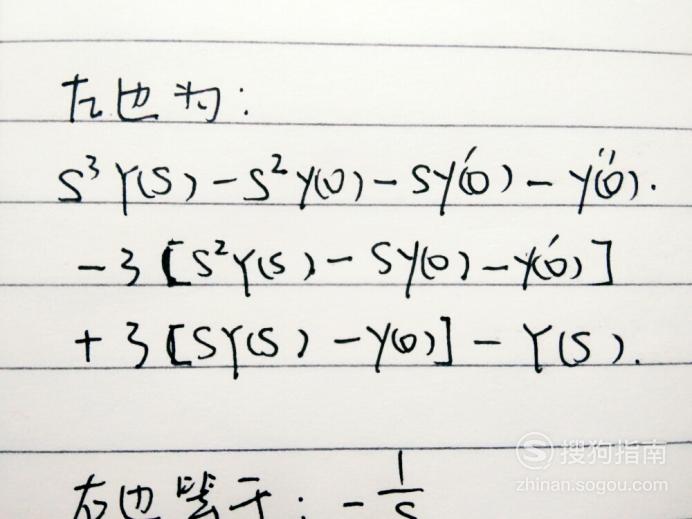 左边为:
S³Y(S)-S²y(0)-Sy'(0)-y''(0).
-3[S²Y(S)-Sy(0)-y'(0)]
+3[SY(S)-y(0)]-Y(S).
右边等于:-1/S
搜狗指南
zhinan.sogou.com